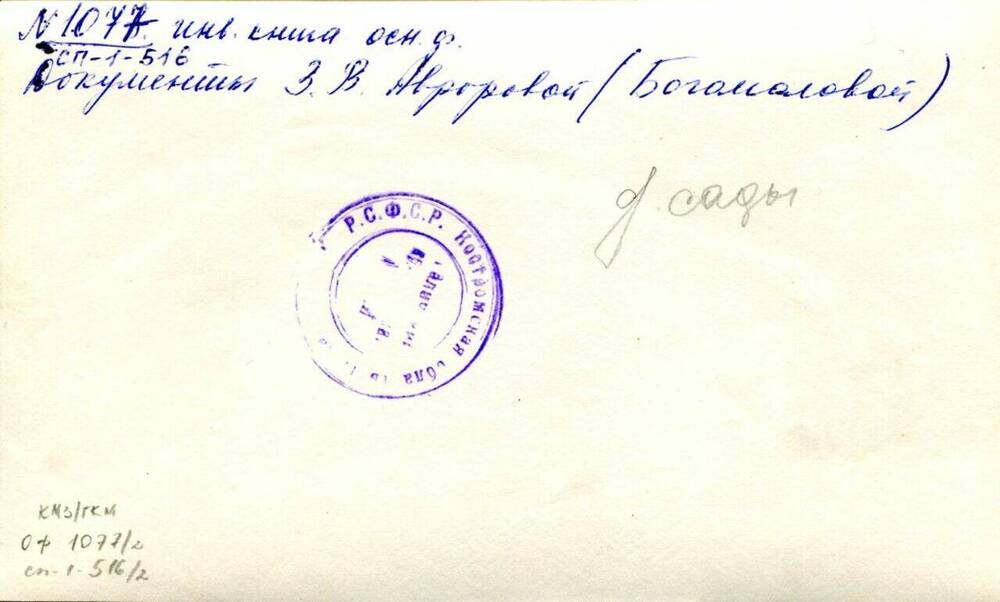 № 1077. инв. книга осн. ф.
СП-1-516
Документы З. В. Авроровой (Богомоловой)
д. сады
Р.С.Ф.С.Р. Костромская обла
КМЗ/ГКМ
ОФ 1077/2
сп-1-516/2